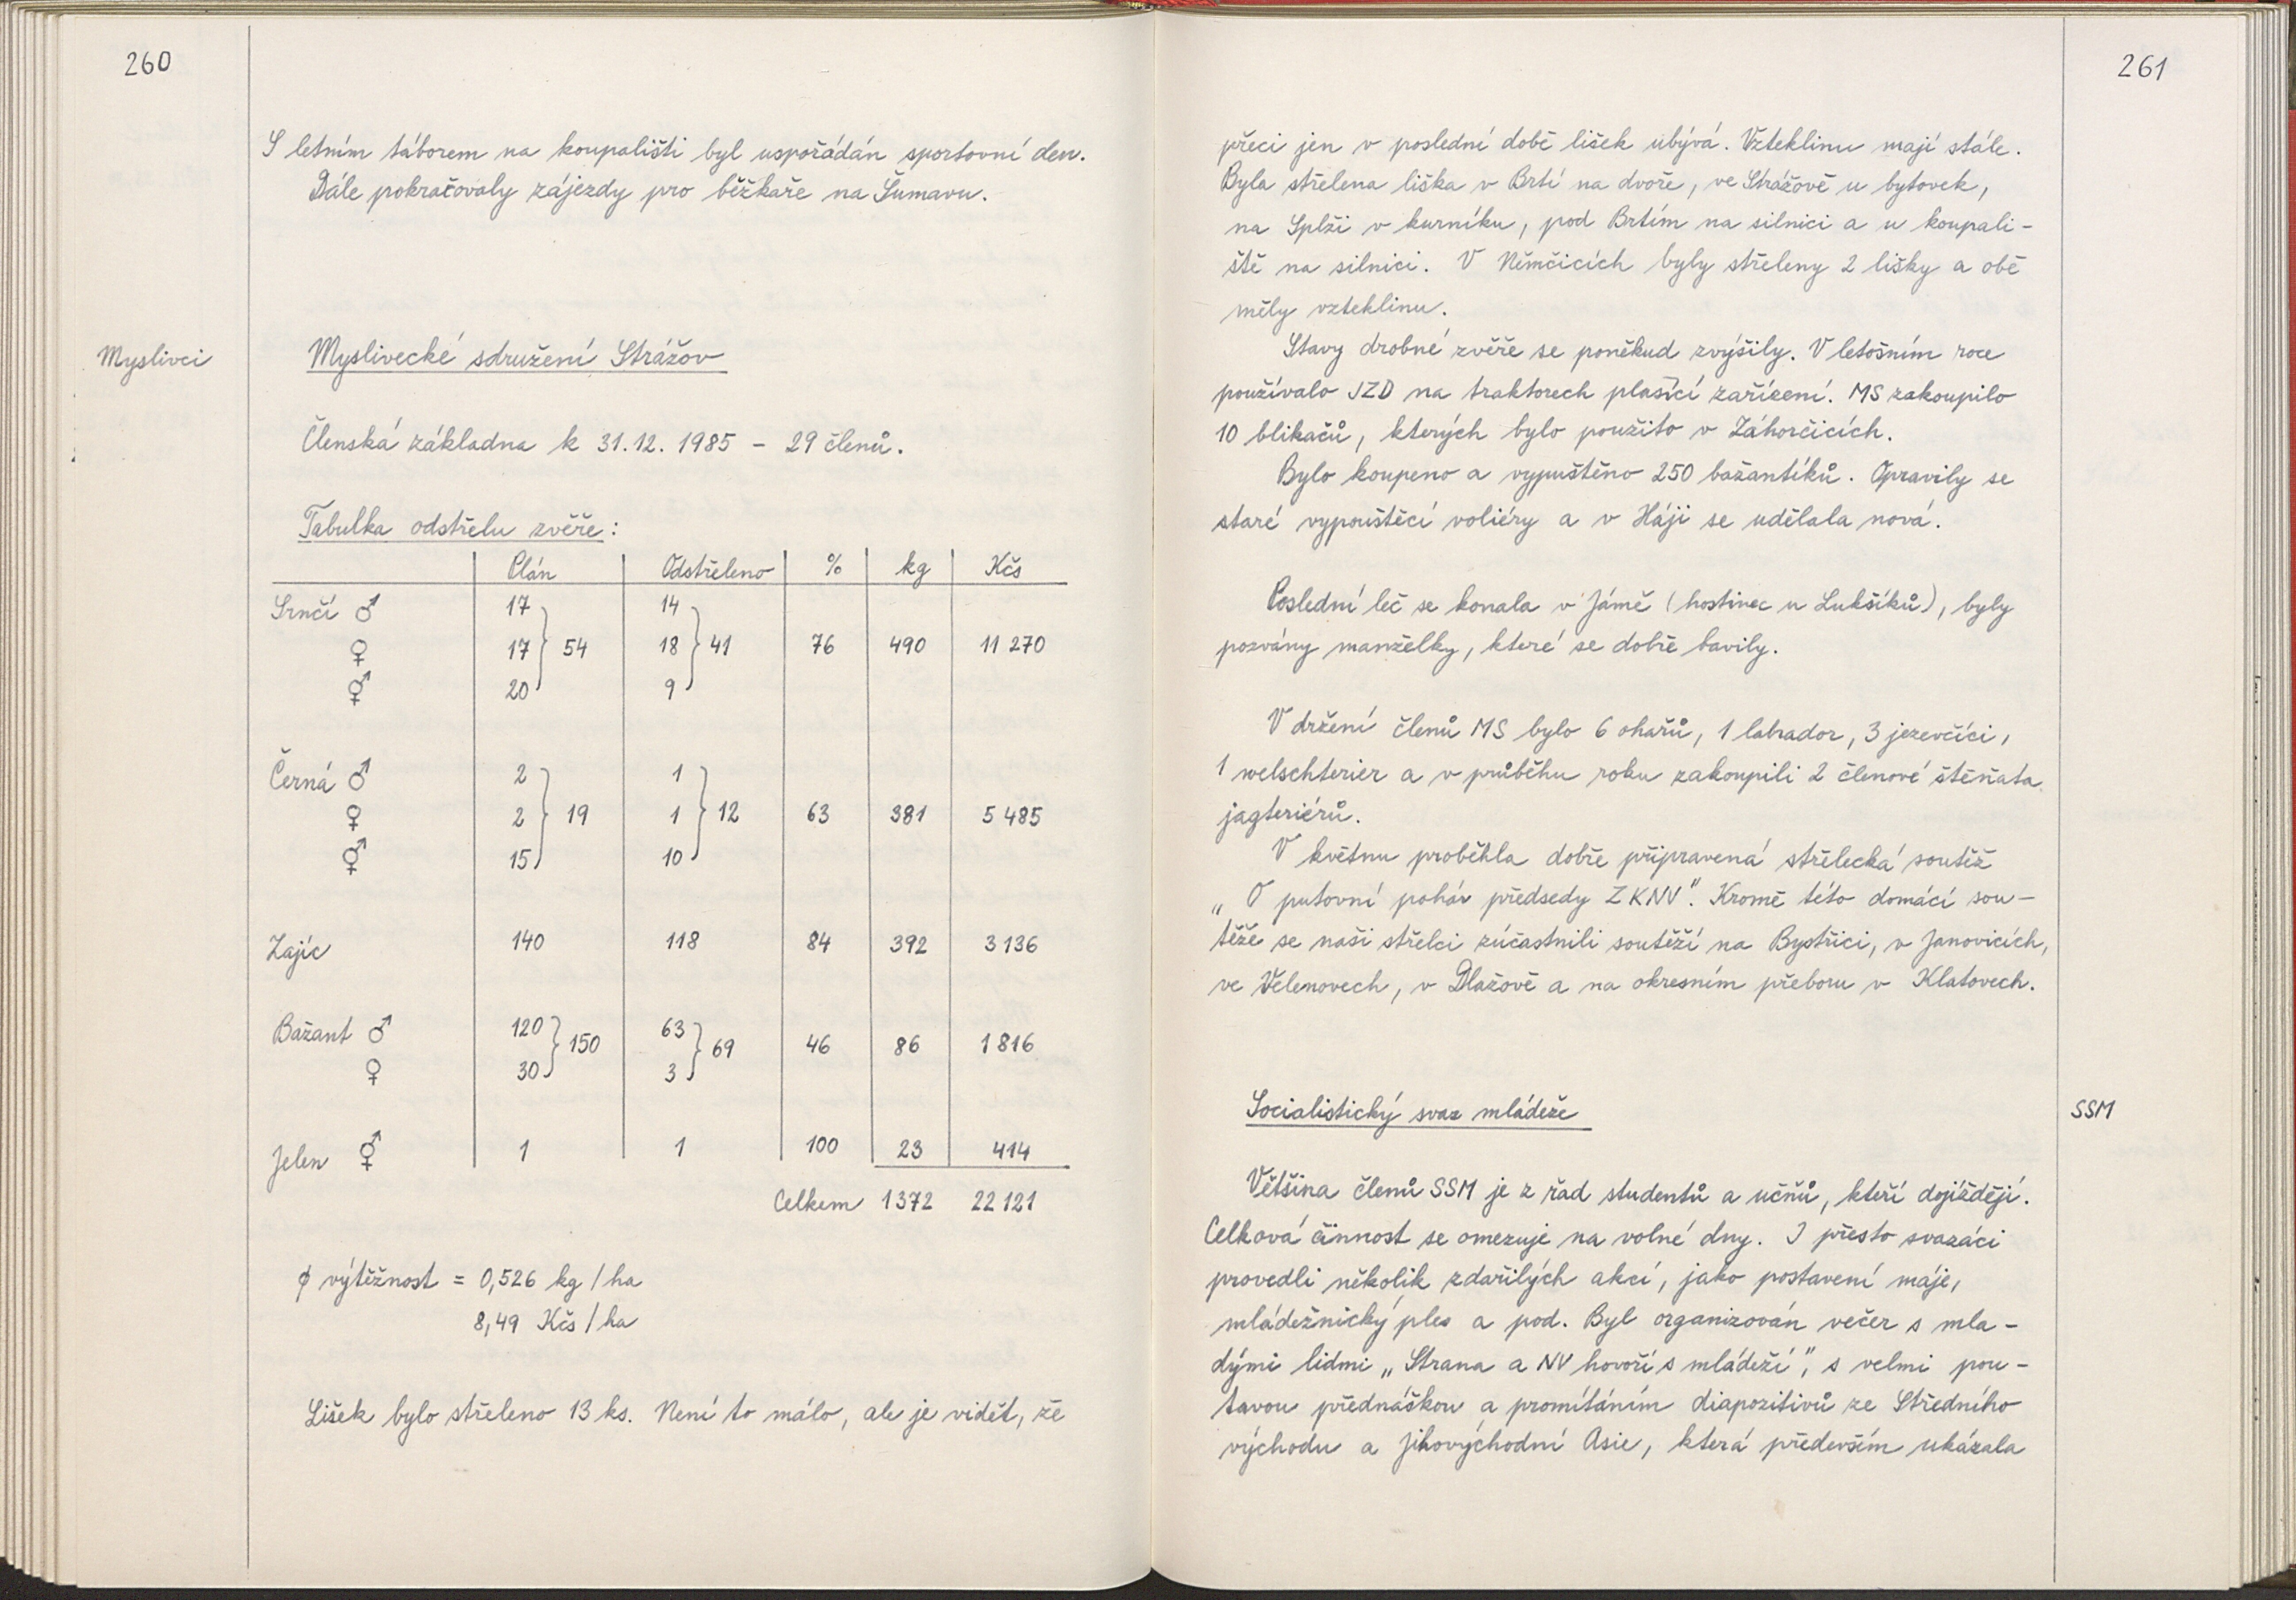 260
S letním táborem na koupališti byl uspořádán sportovní den.
Dále pokračovaly zájezdy pro běžkaře na Šumavu.
Myslivci
Myslivecké sdružení Strážov
Členská základna k 31.12. 1985 - 29 členů.
Tabulka odstřelu zvěře:
Plán Odstřeleno % kg Kčs
Srnčí ♂ 17 14
♀ 17 } 54 18 } 41 76 490 11 270
⚥ 20 9
Černá ♂ 2 1
♀ 2 } 19 1 } 12 63 381 5 485
⚥ 15 10
Zajíc 140 118 84 392 3 136
Bažant ♂ 120 } 150 63 } 69 46 86 1 816
♀ 30 3
Jelen ⚥ 1 1 100 23 414
Celkem 1372 22 121
ϕ výtěžnost = 0,526 kg / ha
8,49 Kčs / ha
Lišek bylo střeleno 13 ks. Není to málo, ale je vidět, že
261
přeci jen v poslední době lišek ubývá. Vzteklinu mají stále.
Byla střelena liška v Brtí na dvoře, ve Strážově u bytovek,
na Splži v kurníku, pod Brtím na silnici a u koupali-
ště na silnici. V Němčicích byly střeleny 2 lišky a obě
měly vzteklinu.
Stavy drobné zvěře se poněkud zvýšily. V letošním roce
používalo JZD na traktorech plašící zařízení. MS zakoupilo
10 blikačů, kterých bylo použito v Záhorčicích.
Bylo koupeno a vypuštěno 250 bažantíků. Opravily se
staré vypouštěcí voliéry a v Háji se udělala nová.
Poslední leč se konala v Jámě (hostinec u Lukšíků), byly
pozvány manželky, které se dobře bavily.
V držení členů MS bylo 6 ohařů, 1 labrador, 3 jezevčíci,
1 welschteriér a v průběhu roku zakoupili 2 členové štěňata
jagteriérů.
V květnu proběhla dobře připravená střelecká soutěž
„O putovní pohár předsedy ZKNV". Kromě této domácí sou-
těže se naši střelci zúčastnili soutěží na Bystřici, v Janovicích,
ve Velenovech, v Dlažově a na okresním přeboru v Klatovech.
Socialistický svaz mládeže
SSM
Většina členů SSM je z řad studentů a učňů, kteří dojíždějí.
Celková činnost se omezuje na volné dny. I přesto svazáci
provedli několik zdařilých akcí, jako postavení máje,
mládežnický ples a pod. Byl organizován večer s mla-
dými lidmi „Strana a NV hovoří s mládeží", s velmi pou-
tavou přednáškou a promítáním diapozitivů ze Středního
východu a Jihovýchodní Asie, která především ukázala